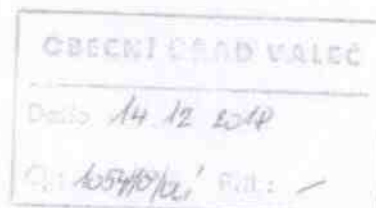 OBECNÍ ÚŘAD VALEČ
Došlo 14.12 2018
Č.: Příl.: —